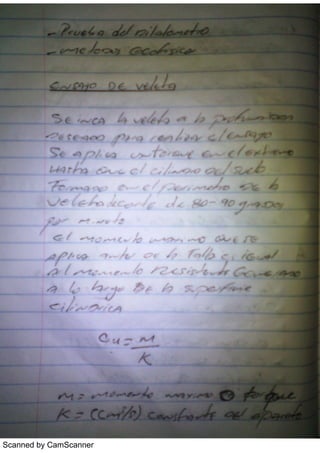 - Prueba del dilatometro
- metodos Geofisico
ensayo De veleta
Se inca la veleta a la profundidad
Deseado para realizar el ensayo
Se aplica un torque en el extremo
Hasta que el cilindro del suelo
Formado en el perimetro de la
veleta de corte de 80-90 grados
por minuto
el momento maximo que se
aplica antes de la falla es igual
al momento resistente Generado
a lo largo De la superficie
cilindrica
Cu = M
K
M = momento maximo torque
K = (cm³/s) constante del aparato
Scanned by CamScanner